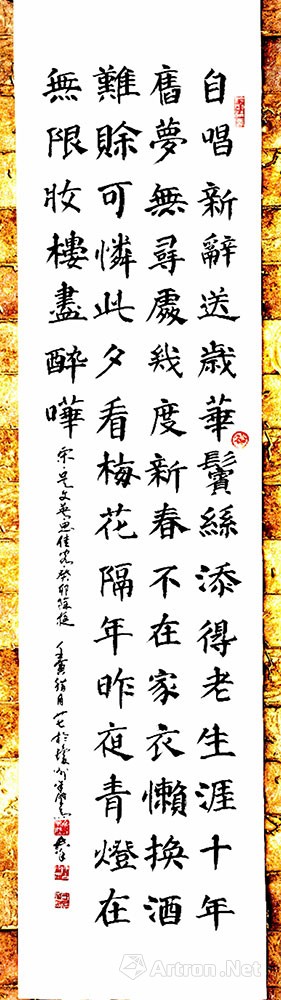 自唱新辭送歲華鬢絲添得老生涯十年
舊夢無尋處幾度新春不在家衣懶換酒
難賒可憐此夕看梅花隔年昨夜青燈在
無限妝樓盡醉嘩
宋吳文英思佳客癸卯除夜
Artron.Net